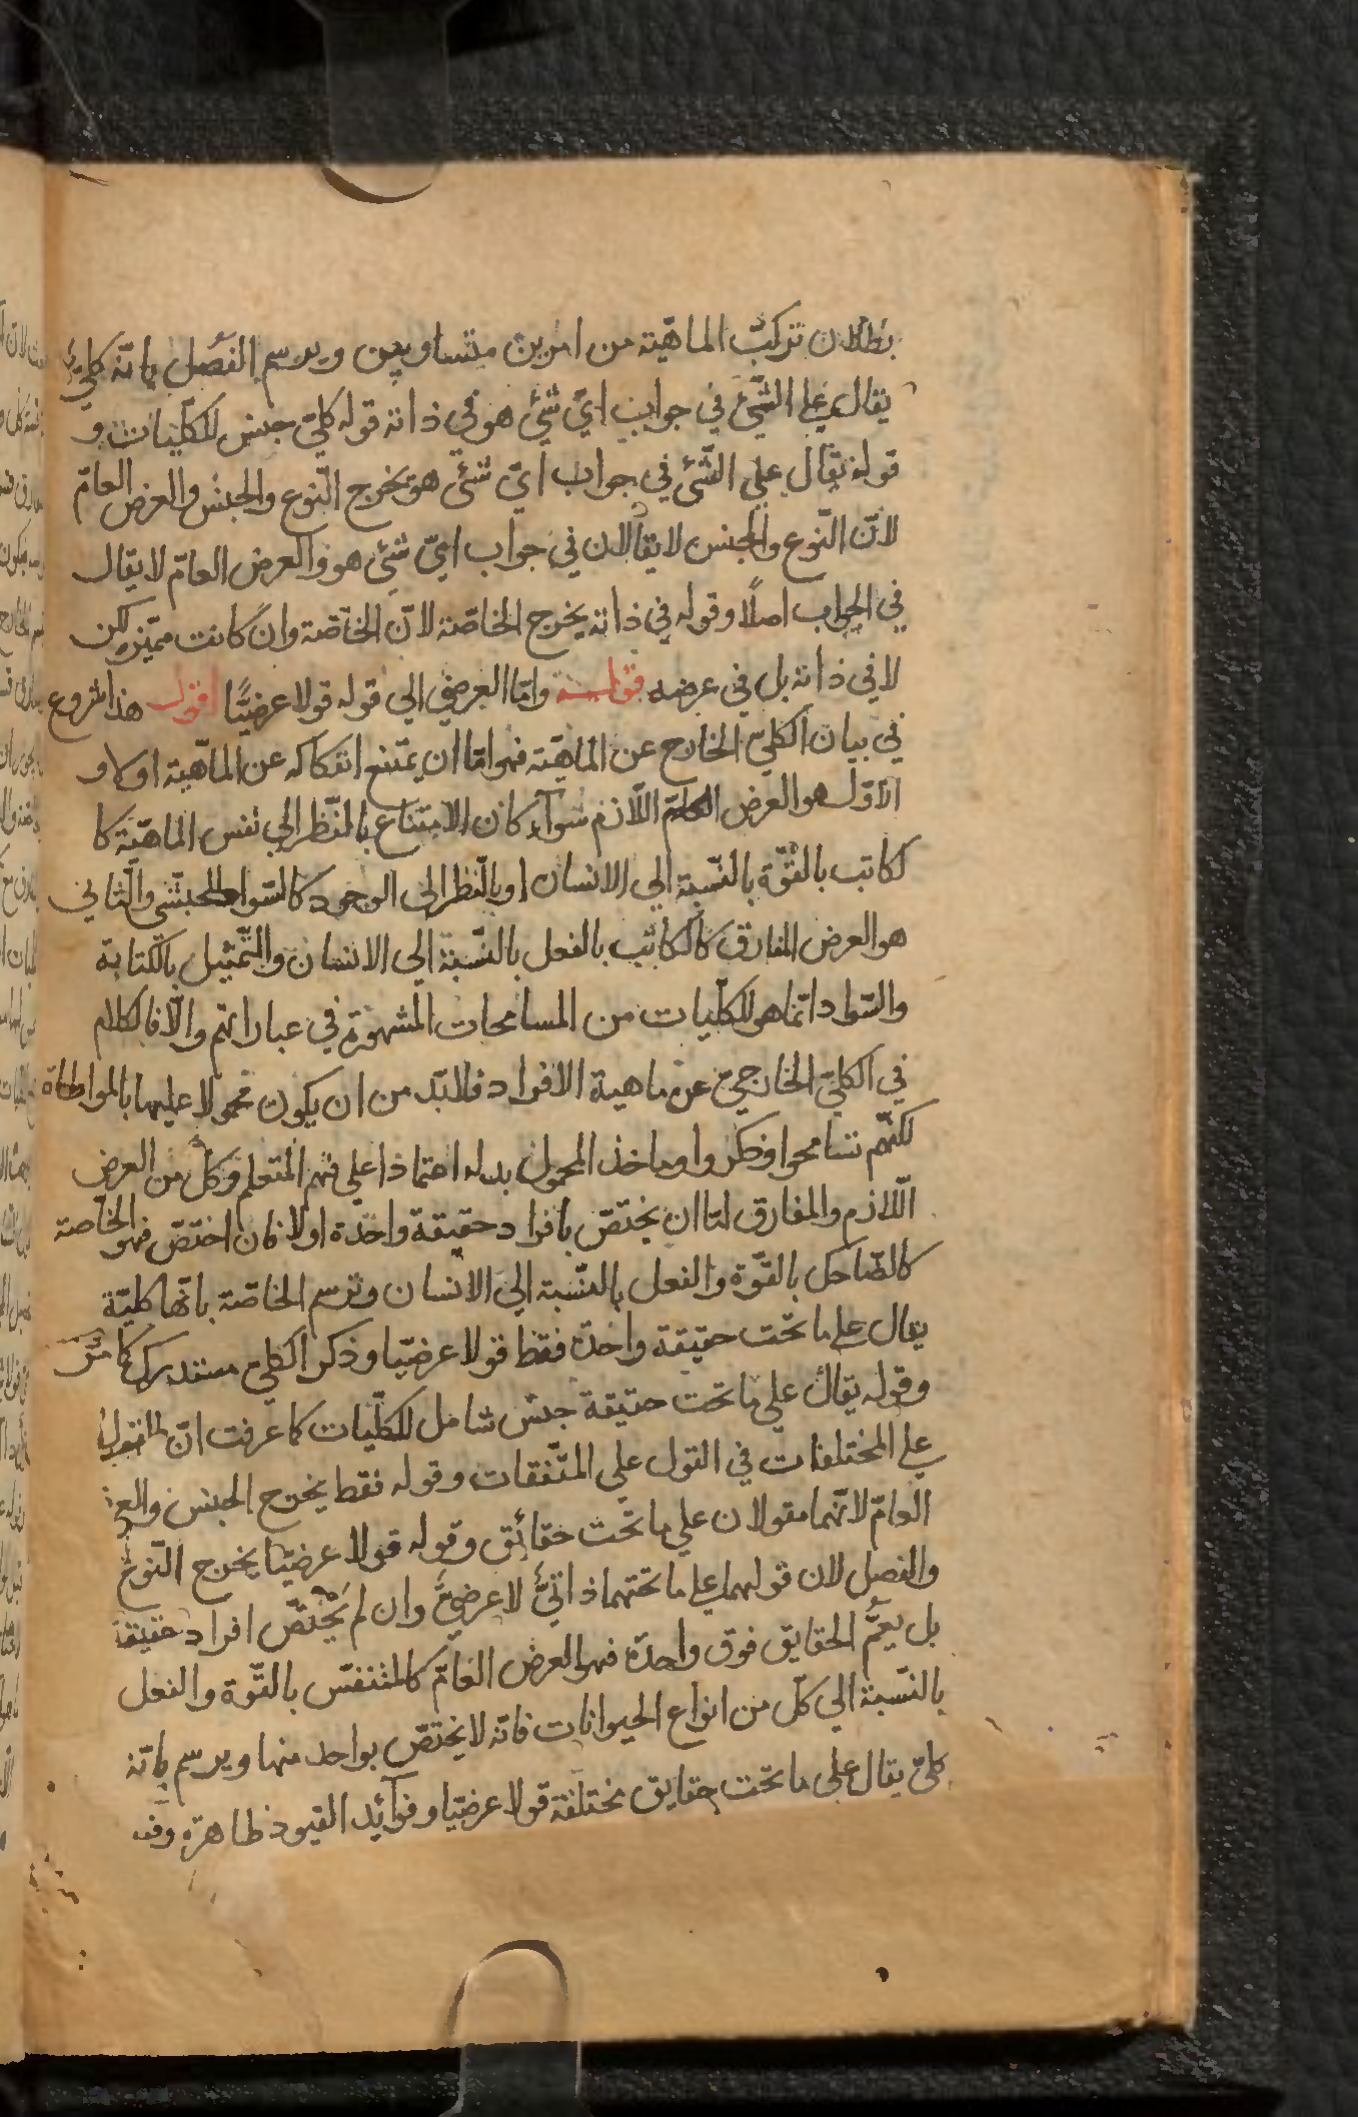 بطلان تركب الماهيّة من امرين متساويين ويرسم الفصل بانّه كليّ
يقال علي الشّئ في جواب ايّ شئ هو في ذاته قوله كليّ جنس للكلّيات و
قوله يقال علي الشّئ في جواب ايّ شئ هو يخرج النّوع والجنس والعرض العامّ
لانّ النّوع والجنس لا يقالان في جواب ايّ شئ هو والعرض العامّ لا يقال
في الجواب اصلاً وقوله في ذاته يخرج الخاصّة لانّ الخاصّة وان كانت مميّزة لكن
لا في ذاته بل في عرضه قوله وامّا العرضي الي قوله قولا عرضيًّا اقول هذا شروع
في بيان الكليّ الخارج عن الماهيّة فهو امّا ان يمتنع انفكاكه عن الماهيّة اولا و
الاوّل هو العرض اللّازم سوآء كان الامتناع بالنّظر الي نفس الماهيّة كا
لكاتب بالقوّة بالنّسبة الي الانسان او بالنّظر الى الوجود كالسّواد للحبشي والثّاني
هو العرض المفارق كالكاتب بالفعل بالنّسبة الي الانسان والتّمثيل بالكتابة
والسّواد انّما هو للكلّيات من المسامحات المشهورة في عباراتهم والّا فالكلام
في الكليّ الخارجيّ عن ماهية الافراد فلابّد من ان يكون محمولا عليها بالمواطاة
لكنّهم تسامحوا فذكروا وماخذ المحمول بدله اعتماذا علي فهم المتعلم وكلّ من العرض
اللّازم والمفارق امّا ان يختصّ بافراد حقيقة واحدة اولا فان اختصّ فهو الخاصّة
كالضّاحك بالقوّة والفعل بالنّسبة الي الانسان وترسم الخاصّة بانّها كليّة
يقال علي ما تحت حقيقة واحدة فقط قولا عرضيّا وذكر الكلي مستدرك كما مرّ
وقوله يقال علي ما تحت حقيقة جنس شامل للكلّيات كما عرفت انّ المقول
علي المختلفات في القول علي المتّفقات وقوله فقط يخرج الجنس والعر
العامّ لانّهما مقولان علي ما تحت حقائق وقوله قولا عرضيّا يخرج النّوع
والفصل لان قولهما علي ما تحتهما ذاتيّ لا عرضيّ وان لم يختصّ افراد حقيقة
بل يعمّ الحقايق فوق واحدة فهو العرض العامّ كالمتنفّس بالقوّة والفعل
بالنّسبة الي كلّ من انواع الحيوانات فانّه لا يختصّ بواحد منها ويرسم بانّه
كليّ يقال علي ما تحت حقايق مختلفة قولا عرضيّا وفوآئد القيود ظاهرة